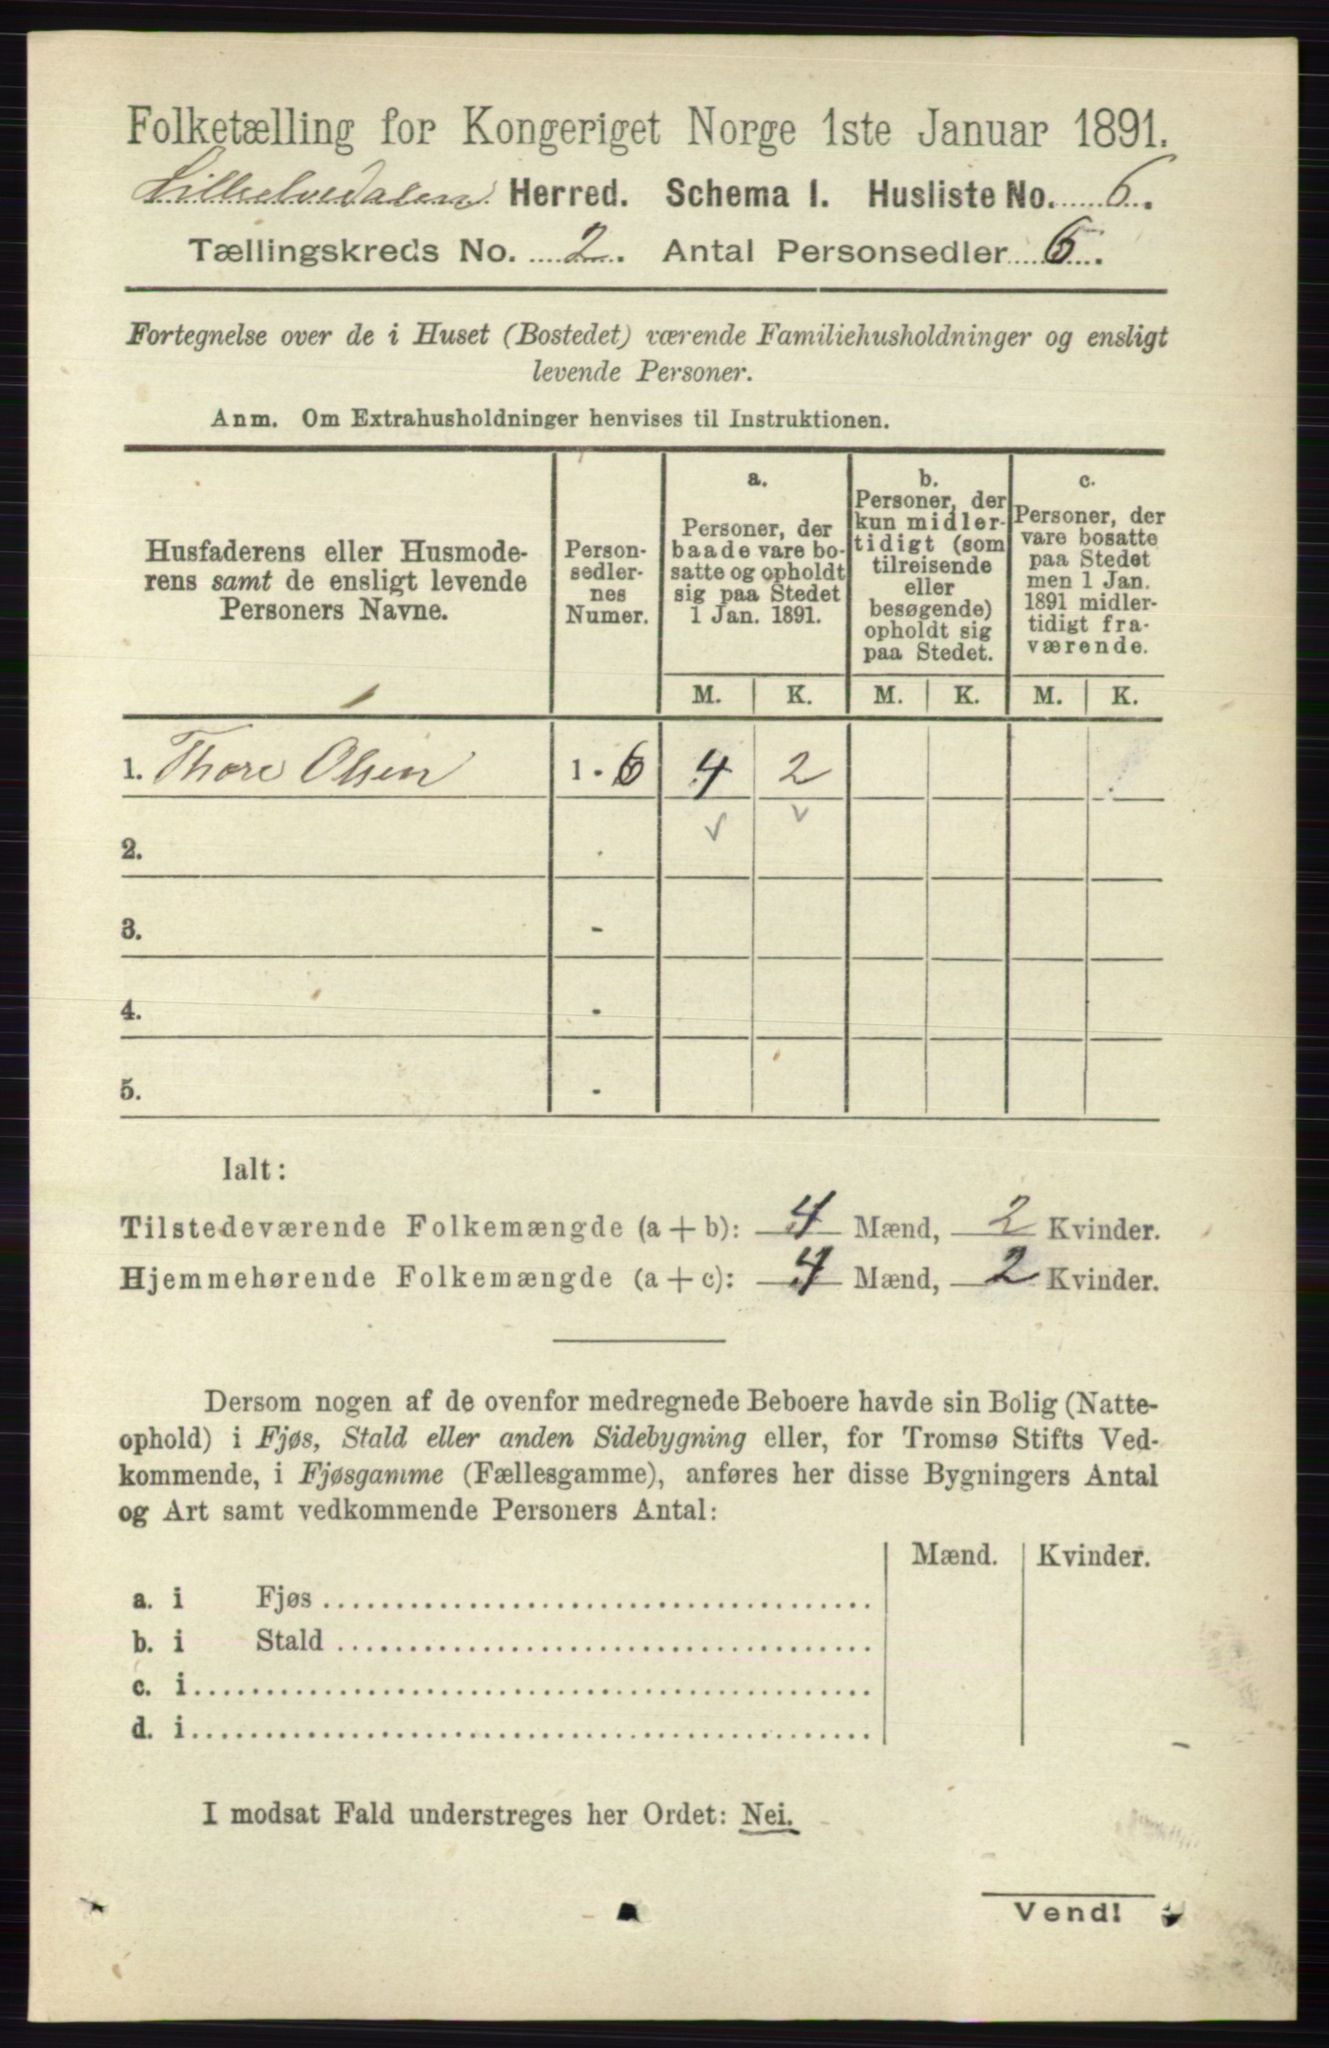 Folketælling for Kongeriget Norge 1ste Januar 1891.
Lilleelvedalen Herred. Schema I. Husliste No. 6.
Tællingskreds No. 2. Antal Personsedler 6.
Fortegnelse over de i Huset (Bostedet) værende Familiehusholdninger og ensligt
levende Personer.
Anm. Om Extrahusholdninger henvises til Instruktionen.
Husfaderens eller Husmode-
rens samt de ensligt levende
Personers Navne.
Person-
sedler-
nes
Numer.
a.
Personer, der
baade vare bo-
satte og opholdt
sig paa Stedet
1 Jan. 1891.
b.
Personer, der
kun midler-
tidigt (som
tilreisende
eller
besøgende)
opholdt sig
paa Stedet.
c.
Personer, der
vare bosatte
paa Stedet
men 1 Jan.
1891 midler-
tidigt fra-
værende.
M. K. M. K. M. K.
1. Thore Olsen 1 - 6 4 2
2. -
3. -
4. -
5. -
Ialt:
Tilstedeværende Folkemængde (a + b): 4 Mænd, 2 Kvinder.
Hjemmehørende Folkemængde (a + c): 4 Mænd, 2 Kvinder.
Dersom nogen af de ovenfor medregnede Beboere havde sin Bolig (Natte-
ophold) i Fjøs, Stald eller anden Sidebygning eller, for Tromsø Stifts Ved-
kommende, i Fjøsgamme (Fællesgamme), anføres her disse Bygningers Antal
og Art samt vedkommende Personers Antal:
Mænd. Kvinder.
a. i Fjøs
b. i Stald
c. i
d. i
I modsat Fald understreges her Ordet: Nei.
Vend!